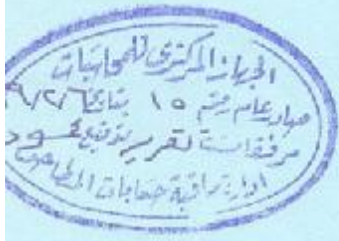 الجهاز المركزى للمحاسبات
صادر عام رقم ١٥ بتاريخ
مرفقات تقرير بتوقيع
ادارة مراقبة حسابات المطاحن